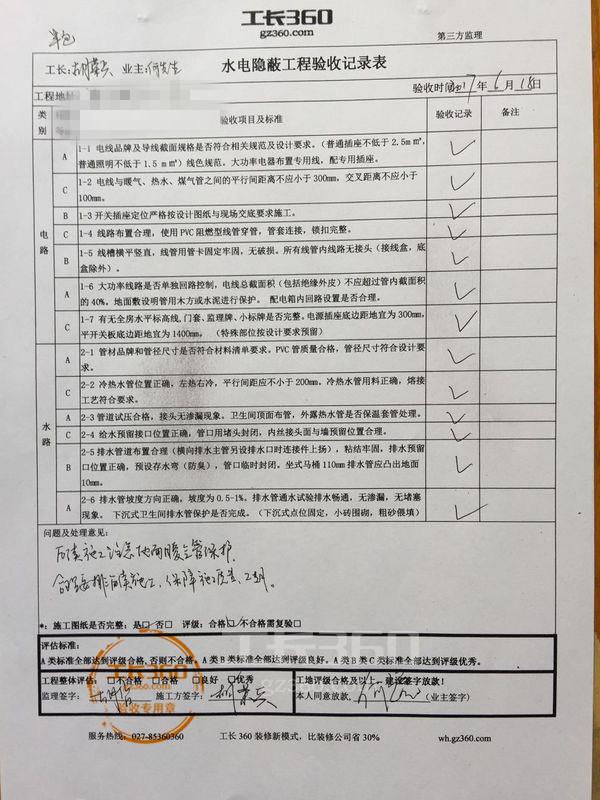 工长360
gz360.com
半包
第三方监理
工长：胡荣兵 业主：何先生
水电隐蔽工程验收记录表
工程地址
验收时间 2017年6月18日
类别 验收项目及标准 验收记录 备注
电路
A 1-1 电线品牌及导线截面规格是否符合相关规范及设计要求。（普通插座不低于2.5m㎡，
普通照明不低于1.5m㎡）线色规范。大功率电器布置专用线，配专用插座。
C 1-2 电线与暖气、热水、煤气管之间的平行间距离不应小于300mm，交叉距离不应小于
100mm。
B 1-3 开关插座定位严格按设计图纸与现场交底要求施工。
C 1-4 线路布置合理，使用PVC阻燃型线管穿管，管套连接，锁扣完整。
B 1-5 线槽横平竖直，线管用管卡固定牢固，无破损。所有线管内线路无接头（接线盒，底
盒除外）。
A 1-6 大功率线路是否单独回路控制，电线总截面积（包括绝缘外皮）不应超过管内截面积
的40%。地面敷设明管用木方或水泥进行保护。 配电箱内回路设置是否合理。
C 1-7 有无全房水平标高线，门套、监理牌、小标牌是否完整。电源插座底边距地宜为300mm，
平开关板底边距地宜为1400mm。（特殊部位按设计要求预留）
水路
A 2-1 管材品牌和管径尺寸是否符合材料清单要求。PVC管质量合格，管径尺寸符合设计要
求。
C 2-2 冷热水管位置正确，左热右冷，平行间距应不小于200mm。冷热水管用料正确，熔接
工艺符合要求。
A 2-3 管道试压合格，接头无渗漏现象。卫生间顶面布管，外露热水管是否保温套管处理。
C 2-4 给水预留接口位置正确，管口用堵头封闭，内丝接头面与墙预留位置合理。
B 2-5 排水管道布置合理（横向排水主管另设排水口时连接件上扬），粘结牢固，排水预留
口位置正确，预设存水弯（防臭），管口临时封闭。坐式马桶110mm排水管应凸出地面
10mm。
A 2-6 排水管坡度方向正确，坡度为0.5-1%。排水管通水试验排水畅通，无渗漏，无堵塞
现象。 下沉式卫生间排水管保护是否完成。（下沉式点位固定，小砖围砌，粗砂偎填）
问题及处理意见：
后续施工注意地面暖气管保护
合理安排后续施工，保障施工质量、工期。
*：施工图纸是否完整：是□ 否□ 评级：合格□ 不合格需复验□
评估标准：
A类标准全部达到评级合格，否则不合格。A类B类标准全部达到评级良好。A类B类C类标准全部达到评级优秀。
工程整体评估：□不合格 □合格 □良好 □优秀
工地评级合格及以上，建议签字放款！
监理签字： 施工方签字：胡荣兵
本人同意放款， （业主签字）
工长360
验收专用章
服务热线：027-85360360
工长360装修新模式，比装修公司省30%
wh.gz360.com